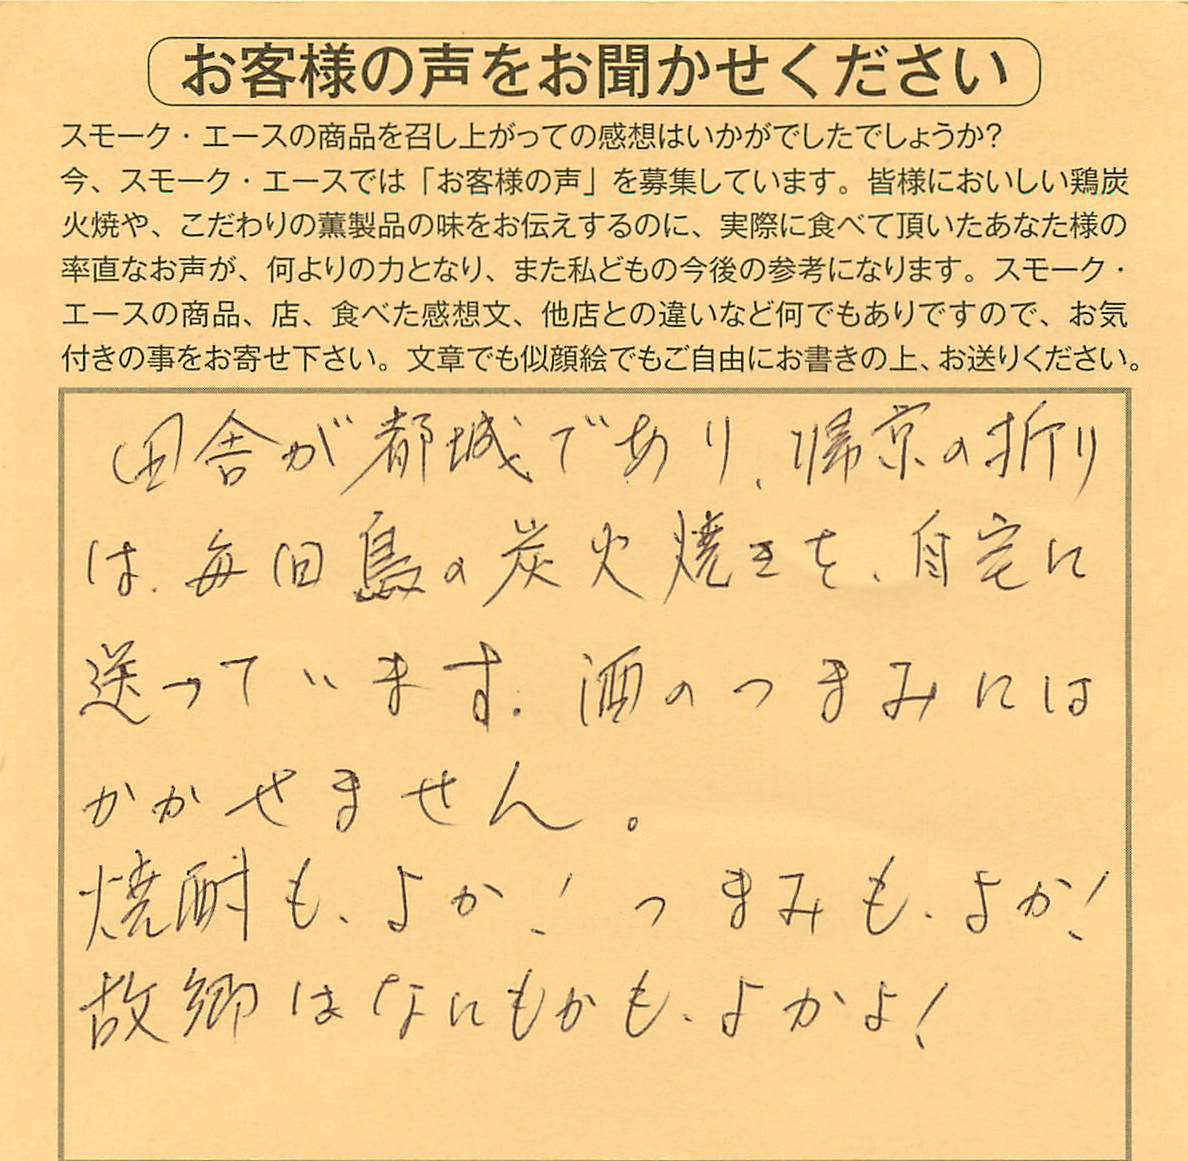 お客様の声をお聞かせください
スモーク・エースの商品を召し上がっての感想はいかがでしたでしょうか?
今、スモーク・エースでは「お客様の声」を募集しています。皆様においしい鶏炭
火焼や、こだわりの薫製品の味をお伝えするのに、実際に食べて頂いたあなた様の
率直なお声が、何よりの力となり、また私どもの今後の参考になります。スモーク・
エースの商品、店、食べた感想文、他店との違いなど何でもありですので、お気
付きの事をお寄せ下さい。文章でも似顔絵でもご自由にお書きの上、お送りください。
田舎が都城であり、帰京の折り
は、毎回鳥の炭火焼きを、自宅に
送っています。酒のつまみには
かかせません。
焼酎も、よか!つまみも、よか!
故郷はなにもかも、よかよ!